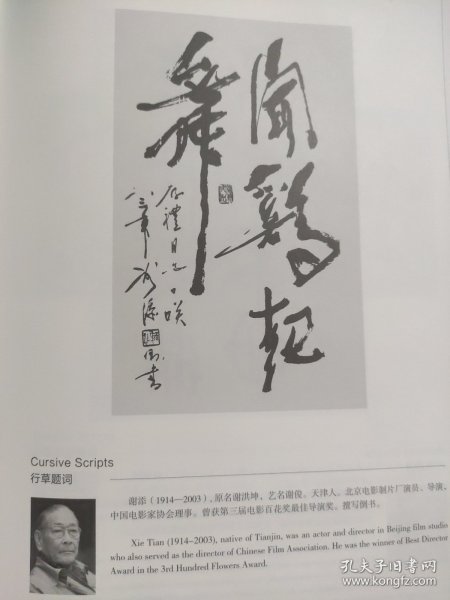 聞鷄起
舞
八三年谢添
倒书
Cursive Scripts
行草题词
谢添（1914—2003），原名谢洪坤、艺名谢俊。天津人。北京电影制片厂演员、导演，
中国电影家协会理事。曾获第三届电影百花奖最佳导演奖。擅写倒书。
Xie Tian (1914-2003), native of Tianjin, was an actor and director in Beijing film studio
who also served as the director of Chinese Film Association. He was the winner of Best Director
Award in the 3rd Hundred Flowers Award.
孔夫子旧书网
www.kongfz.com